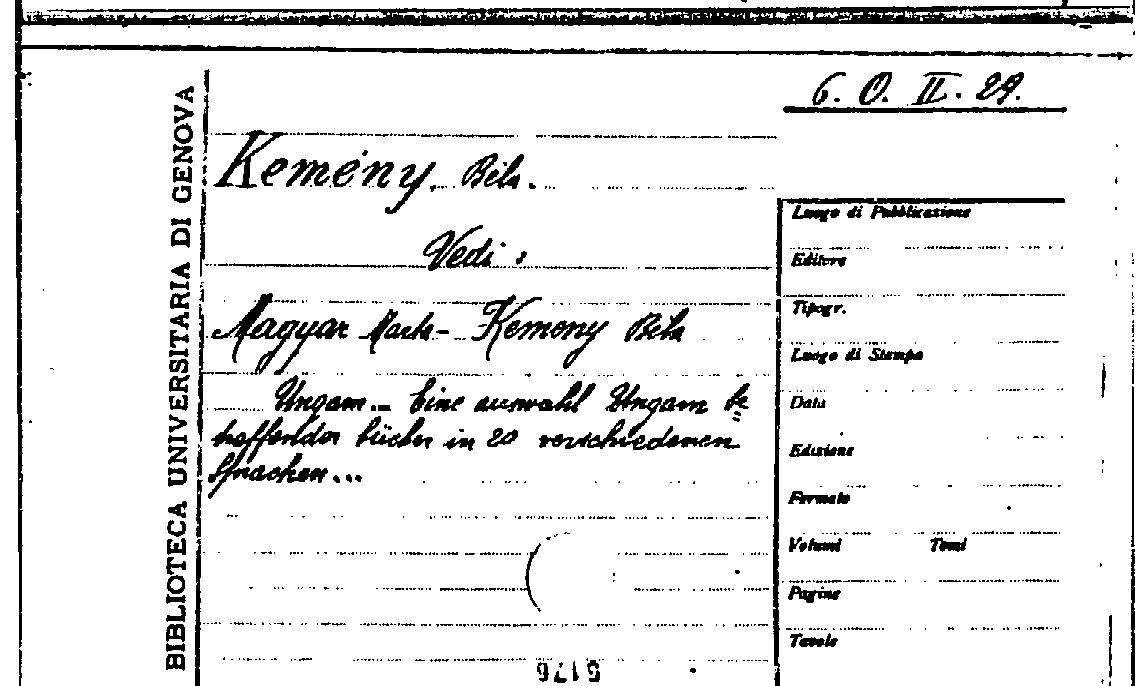 6. O. II. 29.
BIBLIOTECA UNIVERSITARIA DI GENOVA
Kemény Béla.
Vedi:
Magyar - Kemeny Béla
Ungarn... Eine auswahl Ungarn be=
treffender bücher in 20 verschiedenen
Sprachen...
Luogo di Pubblicazione
Editore
Tipogr.
Luogo di Stampa
Data
Edizione
Formato
Volumi Tomi
Pagine
Tavole